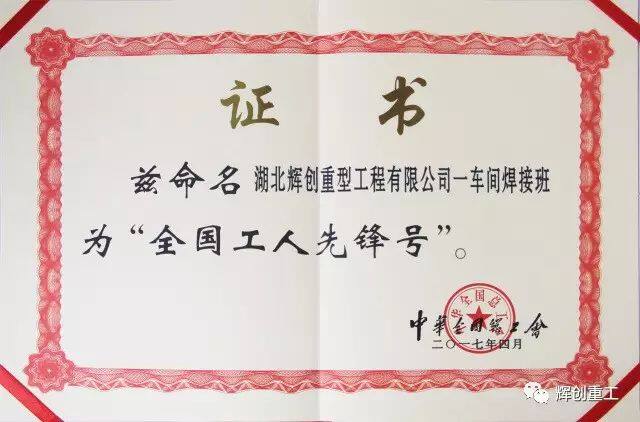 证书
兹命名 湖北辉创重型工程有限公司一车间焊接班
为“全国工人先锋号”。
中华全国总工会
中華全国總工會
二〇一七年四月
辉创重工